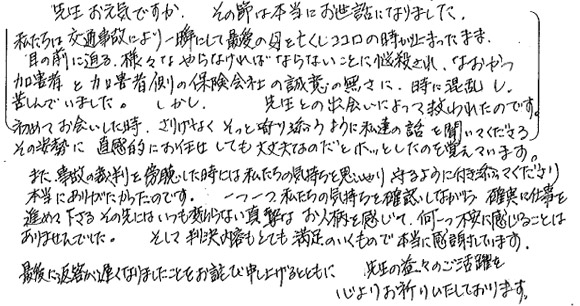 先生 お元気ですか. その節は本当にお世話になりました.
私たちは交通事故により一瞬にして最後の母を亡くしココロの時が止ったまま.
目の前に迫る.様々なやらなければならないことに悩殺され、なおかつ
加害者と加害者側の保険会社の誠意の悪さに、時に混乱し.
苦しんでいました. しかし. 先生との出会いによって救われたのです。
初めてお会いした時、さりげなく そっと寄り添うように私達の話を聞いてくださる
その姿勢に 直感的にお任せしても大丈夫なのだとホッとしたのを覚えています.
また.事故の裁判を傍聴した時には私たちの気持ちを思いやり 守るように付き添ってくださり
本当にありがたかったのです. 一つ一つ私たちの気持ちを確認しながら 確実に仕事を
進め下さるその先にはいつも変わらない真摯な お人柄を感じて、何一つ不安に感じることは
ありませんでした. そして判決内容もとても満足のいくもので本当に感謝しています.
最後に返答が遅くなりましたことをお詫び申し上げるとともに 先生の益々のご活躍を
心よりお祈りいたしております.